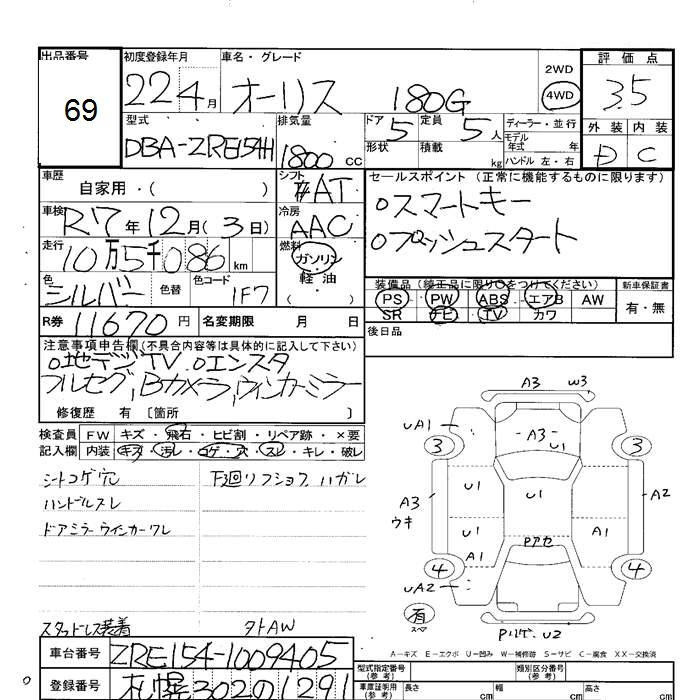 出品番号 初度登録年月 車名・グレード 2WD 評価点
69 22年4月 オーリス 180G 4WD 3.5
型式 排気量 ドア 定員 ディーラー・並行 外装 内装
DBA-ZRE154H 1800CC 5 5人 モデル年式 年 D C
形状 積載 kg ハンドル 左・右
車歴 シフト セールスポイント(正常に機能するものに限ります)
自家用・( ) AT oスマートキー
車検 R7年12月(3日) 冷房 AAC oプッシュスタート
走行 10万5千086km 燃料 ガソリン
色 シルバー 色替 色コード 1F7 軽・油 ( )
装備品(純正品に限り○をつけてください) 新車保証書
PS PW ABS エアB AW 有・無
SR ナビ TV カワ
R券 11670円 名変期限 月 日 後日品
注意事項申告欄(不具合内容等は具体的に記入して下さい)
o地デジTV oエンスタ
フルセグ,Bカメラ,ウィンカーミラー
修復歴 有 〔箇所 〕
検査員 FW キズ・飛石・ヒビ割・リペア跡・×要
記入欄 内装 キズ・汚レ・コゲ・穴・スレ・キレ・破レ
シートコゲ穴 下廻リフショク ハガレ
ハンドルスレ
ドアミラーウインカーワレ
スタッドレス装着 夕トAW
A3 W3
UA1 A3 U1
3 3
A3 ウキ U1 U1 A2
U1 A1
A1 Pアセ
4 4
UA2
有 スペ
Pリゲ.U2
A-キズ E-エクボ U-凹み W-補修跡 S-サビ C-腐食 XX-交換済
車台番号 ZRE154-1009405
型式指定番号(参考) 類別区分番号(参考)
登録番号 札幌302の1291
車庫証明用(参考) 長さ cm 幅 cm 高さ cm